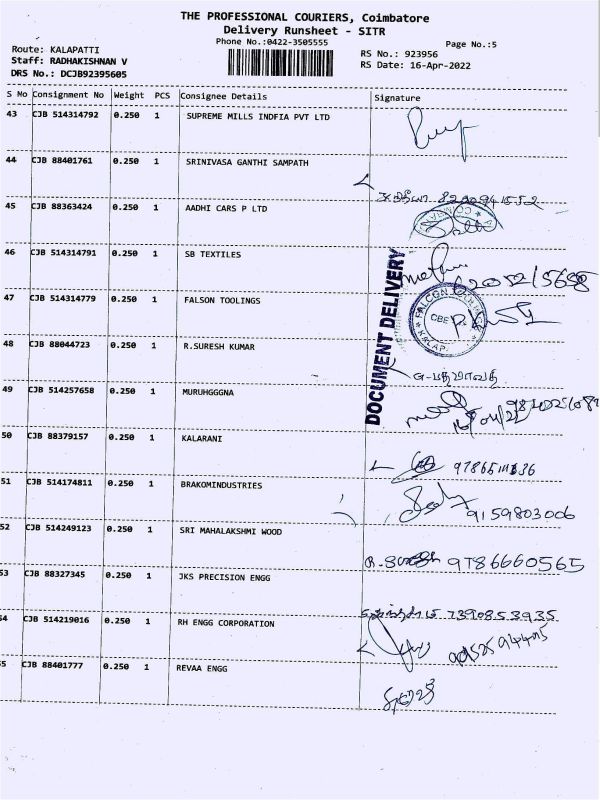 THE PROFESSIONAL COURIERS, Coimbatore
Delivery Runsheet - SITR
Phone No.:0422-3505555
Page No.:5
Route: KALAPATTI
Staff: RADHAKISHNAN V
RS No.: 923956
DRS No.: DCJB92395605
RS Date: 16-Apr-2022
S No Consignment No Weight PCS Consignee Details Signature
43 CJB 514314792 0.250 1 SUPREME MILLS INDFIA PVT LTD
44 CJB 88401761 0.250 1 SRINIVASA GANTHI SAMPATH
45 CJB 88363424 0.250 1 AADHI CARS P LTD
46 CJB 514314791 0.250 1 SB TEXTILES
47 CJB 514314779 0.250 1 FALSON TOOLINGS
48 CJB 88044723 0.250 1 R.SURESH KUMAR
49 CJB 514257658 0.250 1 MURUHGGGNA
50 CJB 88379157 0.250 1 KALARANI
51 CJB 514174811 0.250 1 BRAKOMINDUSTRIES
9159803006
52 CJB 514249123 0.250 1 SRI MAHALAKSHMI WOOD
9786660565
53 CJB 88327345 0.250 1 JKS PRECISION ENGG
7390853935
54 CJB 514219016 0.250 1 RH ENGG CORPORATION
55 CJB 88401777 0.250 1 REVAA ENGG
DOCUMENT DELIVERY
FALCON
CBE
KALAP